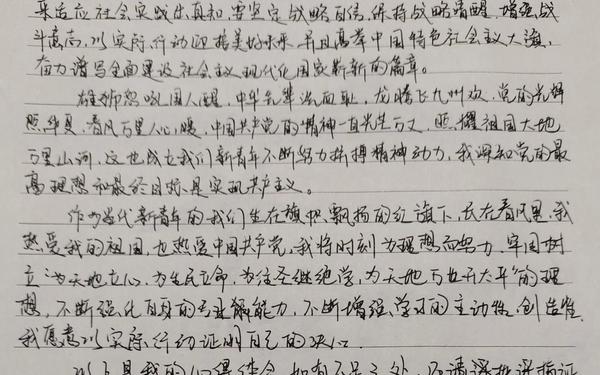 来适应社会实践出真知,要坚定战略自信,保持战略清醒,增强战
斗意志,以实际行动迎接美好未来,并且高举中国特色社会主义大旗,
奋力谱写全面建设社会主义现代化国家崭新的篇章。
雄狮怒吼国人醒,中华先辈洗血耻,龙腾飞九州欢,党的光辉
照华夏,春风万里人心暖,中国共产党的精神一直光芒万丈,照耀祖国大地
万里山河,这也成立我们新青年不断努力拼搏精神动力,我深知党的最
高理想和最终目标是实现共产主义。
作为当代新青年的我们生在旗帜飘扬的红旗下,长在春风里,我
热爱我的祖国,也热爱中国共产党,我将时刻为理想而努力,牢固树
立"为天地立心,为生民立命,为往圣继绝学,为天地万世开太平"的理
想,不断强化自身的专业能力,不断增强学习的主动性,创造性,
我愿意以实际行动证明自己的决心。
以上是我的心得体会,如有不足之处,恳请谅批评指证